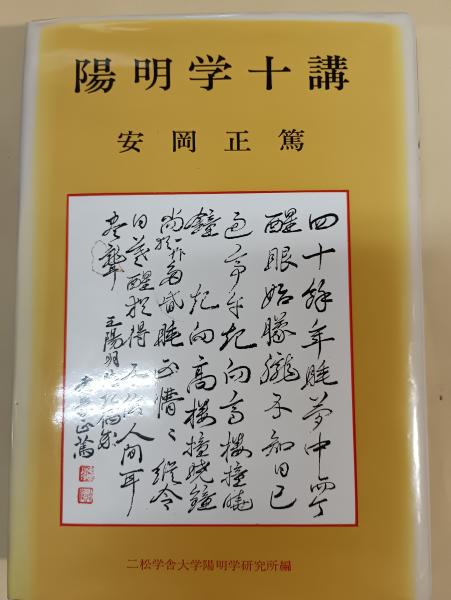 陽明学十講
安岡正篤
四十餘年睡夢中而今
醒眼始朦朧不知日已
過亭午起向高樓撞曉
鐘 起向高樓撞曉鐘
尚多昏睡正懵〻縱令
日暮醒猶得不信人間耳
盡聾 王陽明睡起偶成
正篤
二松学舎大学陽明学研究所編